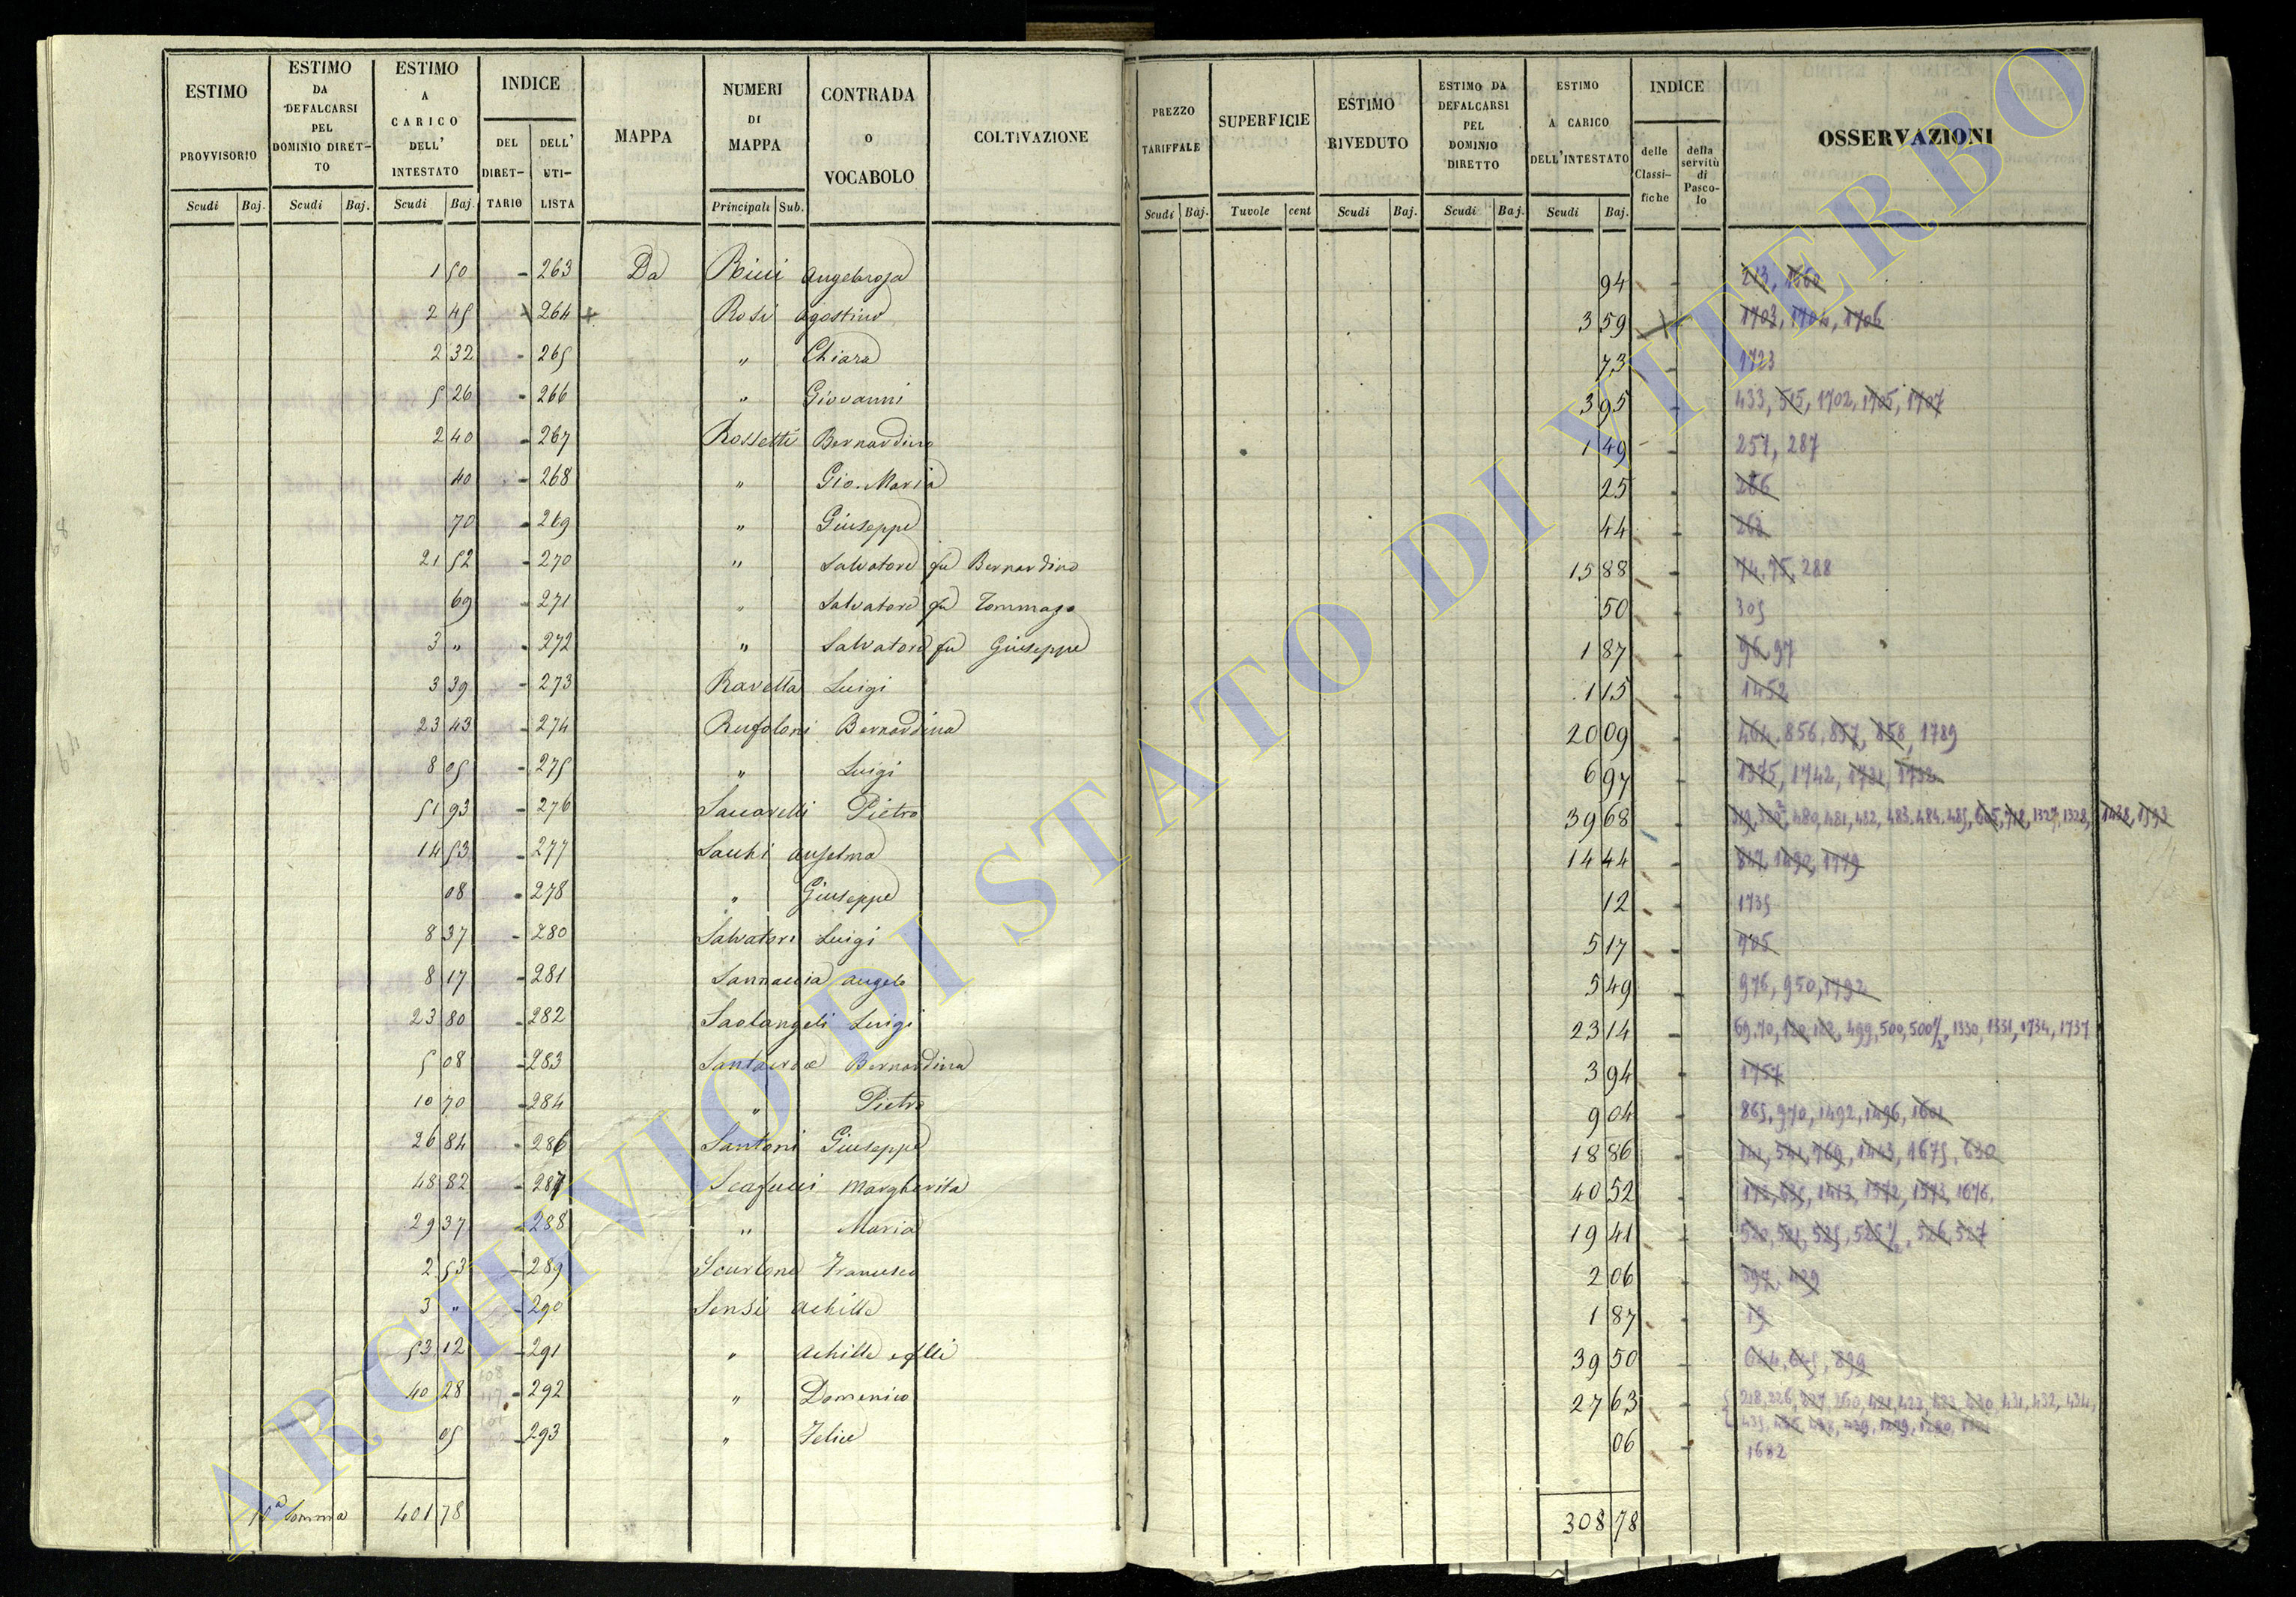 ESTIMO PROVVISORIO Scudi Baj.
ESTIMO DA DEFALCARSI PEL DOMINIO DIRETTO Scudi Baj.
ESTIMO A CARICO DELL' INTESTATO Scudi Baj.
INDICE DEL DIRETTARIO DELL' UTILISTA
MAPPA
NUMERI DI MAPPA Principali Sub.
CONTRADA O VOCABOLO
COLTIVAZIONE
PREZZO TARIFFALE Scudi Baj.
SUPERFICIE Tavole cent
ESTIMO RIVEDUTO Scudi Baj.
ESTIMO DA DEFALCARSI PEL DOMINIO DIRETTO Scudi Baj.
ESTIMO A CARICO DELL'INTESTATO Scudi Baj.
INDICE delle Classifiche della servitù di Pascolo
OSSERVAZIONI
1 50 - 263 Da Ricci Angelarosa 94 - 213, 1560
2 45 264 + Rosi Agostino 3 59 1703, 1704, 1706
2 32 - 265 " Chiara 73 - 1723
5 26 - 266 " Giovanni 3 95 - 433, 515, 1702, 1705, 1707
2 40 - 267 Rossetti Bernardino 1 49 - 257, 287
40 - 268 " Gio. Maria 25 - 286
70 - 269 " Giuseppe 44 - 262
21 52 - 270 " Salvatore fu Bernardino 15 88 - 74, 75, 288
69 - 271 " Salvatore fu Tommaso 50 - 305
3 " - 272 " Salvatore fu Giuseppe 1 87 - 96, 97
3 39 - 273 Ravetta Luigi 1 15 - 1452
23 43 - 274 Rufoloni Bernardina 20 09 - 464, 856, 857, 858, 1789
8 05 - 275 " Luigi 6 97 - 1375, 1742, 1731, 1732
51 93 - 276 Saccarelli Pietro 39 68 - 480, 481, 482, 483, 484, 485, 605, 718, 1327, 1328, 1438, 1593
14 53 - 277 Sacchi Anselmo 14 44 - 817, 1490, 1779
08 - 278 " Giuseppe 12 - 1735
8 37 - 280 Salvatori Luigi 5 17 - 705
8 17 - 281 Sannaccia Angelo 5 49 - 976, 950, 1792
23 80 - 282 Saolangeli Luigi 23 14 - 69, 70, 120, 122, 499, 500, 500½, 1330, 1331, 1734, 1737
5 08 - 283 Santacroce Bernardina 3 94 - 1757
10 70 - 284 " Pietro 9 04 - 865, 970, 1492, 1496, 1601
26 84 - 286 Santoni Giuseppe 18 86 - 141, 541, 769, 1443, 1675, 630
48 82 - 287 Scafucci Margherita 40 52 - 1413, 1572, 1573, 1676.
29 37 - 288 " Maria 19 41 520, 521, 525, 525½, 526, 527
2 53 - 289 Scurloni Francesco 2 06 - 397, 429
3 " - 290 Sensi Achille 1 87 - 19
53 12 - 291 " Achille e flli 39 50 - 644, 645, 899
40 28 - 292 " Domenico 27 63 - 218, 226, 227, 260, 421, 422, 423, 430, 431, 432, 434,
435, 438, 439, 1279, 1280,
05 - 293 " Felice 06 - 1682
10ª Somma 401 78 308 78
ARCHIVIO DI STATO DI VITERBO